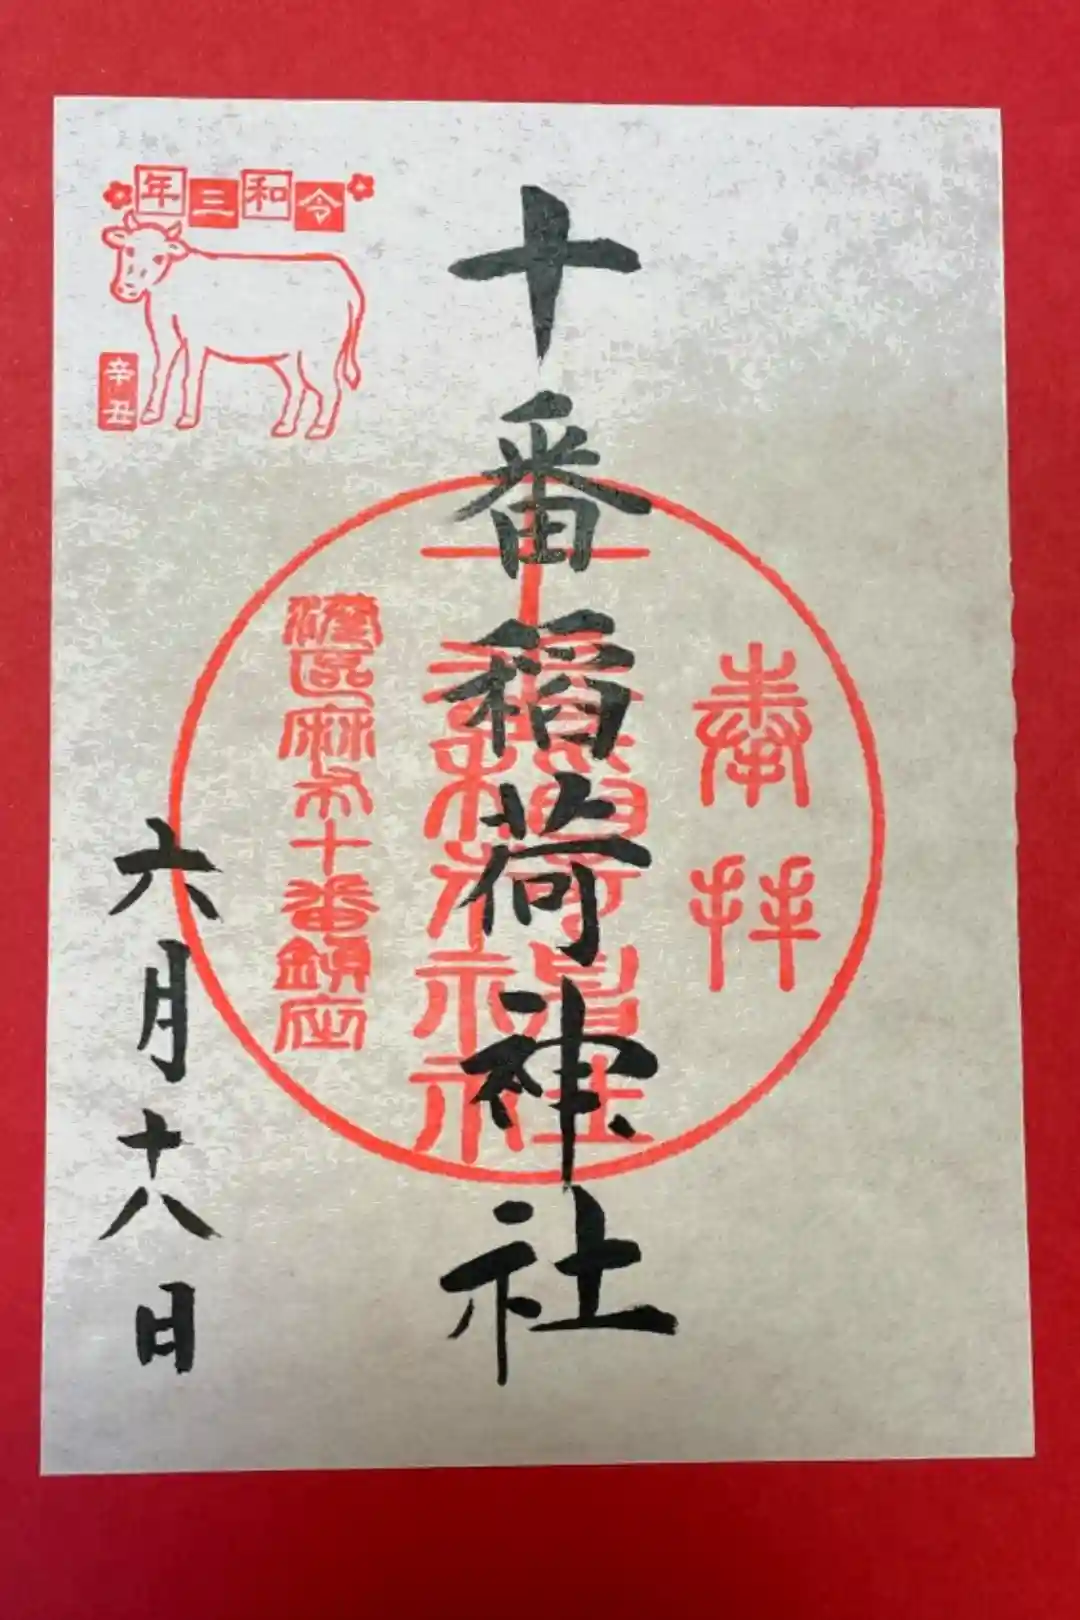 奉拝
十番稲荷神社
港区麻布十番鎮座
令和三年
辛丑
六月十八日